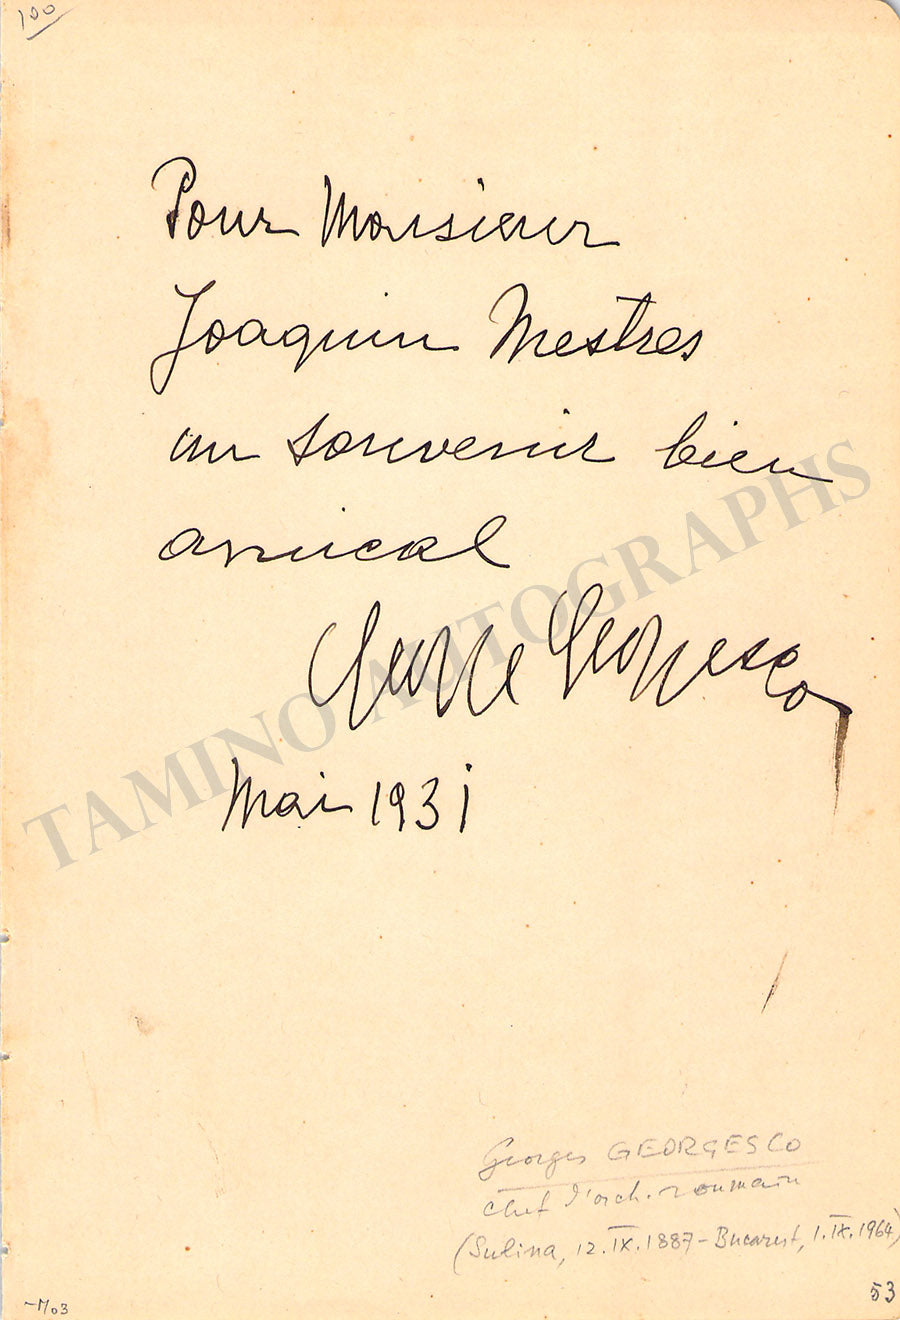 100
Pour Monsieur
Joaquin Mestres
un souvenir bien
amical
George Georgesco
Mai 1931
TAMINO AUTOGRAPHS
Georges GEORGESCO
chef d'orch. roumain
(Sulina, 12.IX.1887 - Bucarest, 1.IX.1964)
53
-Mo3